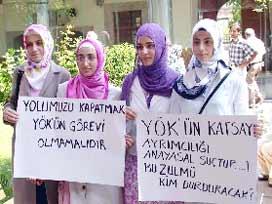 YOLUMUZU KAPATMAK
YÖK'ÜN GÖREVİ
OLMAMALIDIR
YÖK'ÜN KATSAYI
AYRIMCILIĞI
ANAYASAL SUÇTUR...!
BU ZULMÜ
KİM DURDURACAK?